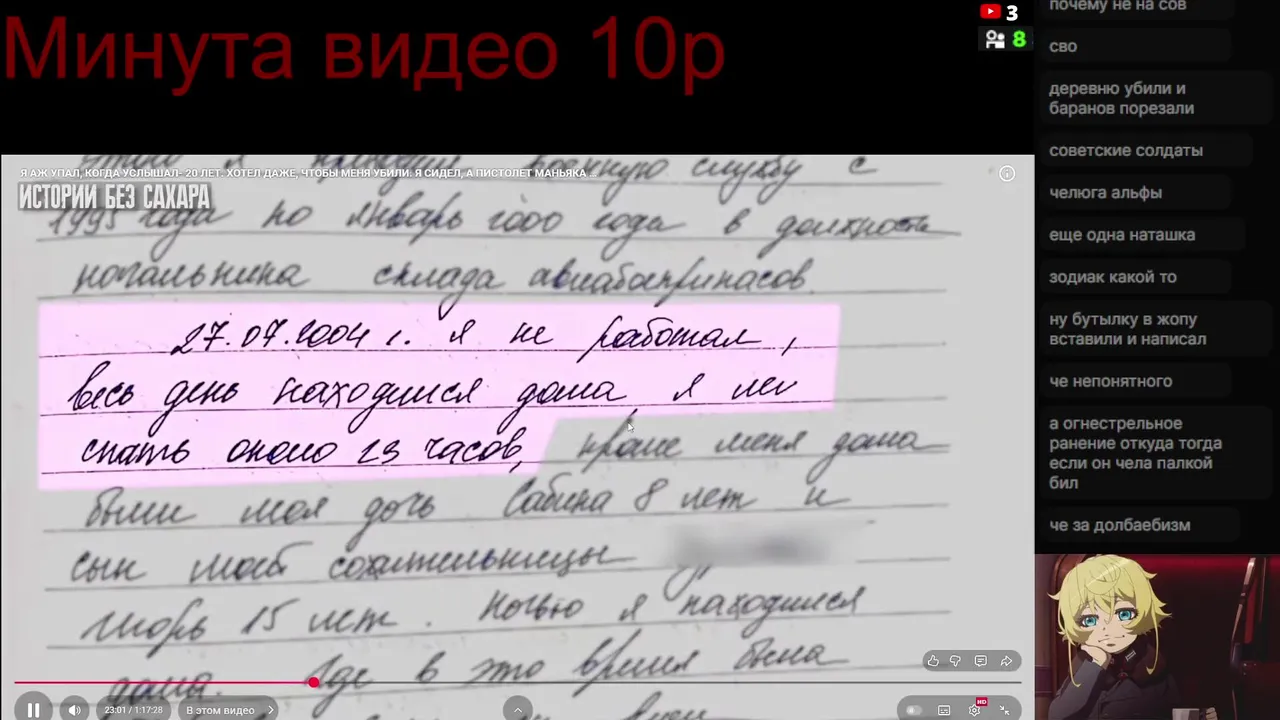 Минута видео 10р
3
8
Я АЖ УПАЛ, КОГДА УСЛЫШАЛ- 20 ЛЕТ. ХОТЕЛ ДАЖЕ, ЧТОБЫ МЕНЯ УБИЛИ. Я СИДЕЛ, А ПИСТОЛЕТ МАНЬЯКА ...
ИСТОРИИ БЕЗ САХАРА
военную службу с
1995 года по январь 2000 года в должности
начальника склада авиабоеприпасов.
27.07.2004 г. я не работал,
весь день находился дома я лег
спать около 23 часов, кроме меня дома
были моя дочь Сабина 8 лет и
сын моей сожительницы
Игорь 15 лет Ночью я находился
дома. Где в это время была
23:01 / 1:17:28
В этом видео
HD
почему не на сов
сво
деревню убили и
баранов порезали
советские солдаты
челюга альфы
еще одна наташка
зодиак какой то
ну бутылку в жопу
вставили и написал
че непонятного
а огнестрельное
ранение откуда тогда
если он чела палкой
бил
че за долбаебизм